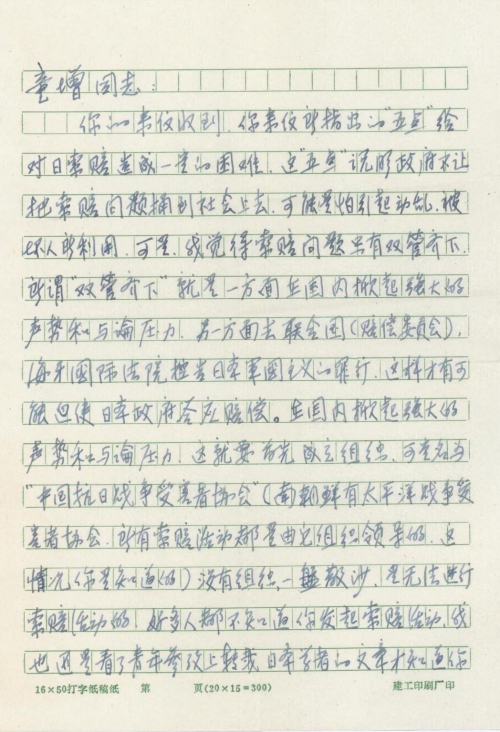 童增同志:
你的来信收到,你来信所指出的"五点"给
对日索赔造成一定的困难。这"五点"说明政府不让
把索赔问题捅到社会上去,可能是怕引起动乱,被
坏人所利用,可是,我觉得索赔问题只有双管齐下,
所谓"双管齐下"就是一方面在国内掀起强大的
声势和与论压力,另一方面去联合国(赔偿委员会),
海牙国际法院控告日本军国主义的罪行,这样才有可
能迫使日本政府答应赔偿。在国内掀起强大的
声势和与论压力,这就要首先成立组织,可定名为
"中国抗日战争受害者协会"(南朝鲜有太平洋战争受
害者协会,所有索赔活动都是由它组织领导的,这
情况你是知道的)没有组织,一盘散沙,是无法进行
索赔活动的!好多人都不知道你发起索赔活动,我
也还是看了青年参考上转载日本学者的文章才知道你
16×50打字纸稿纸 第 页(20×15=300) 建工印刷厂印